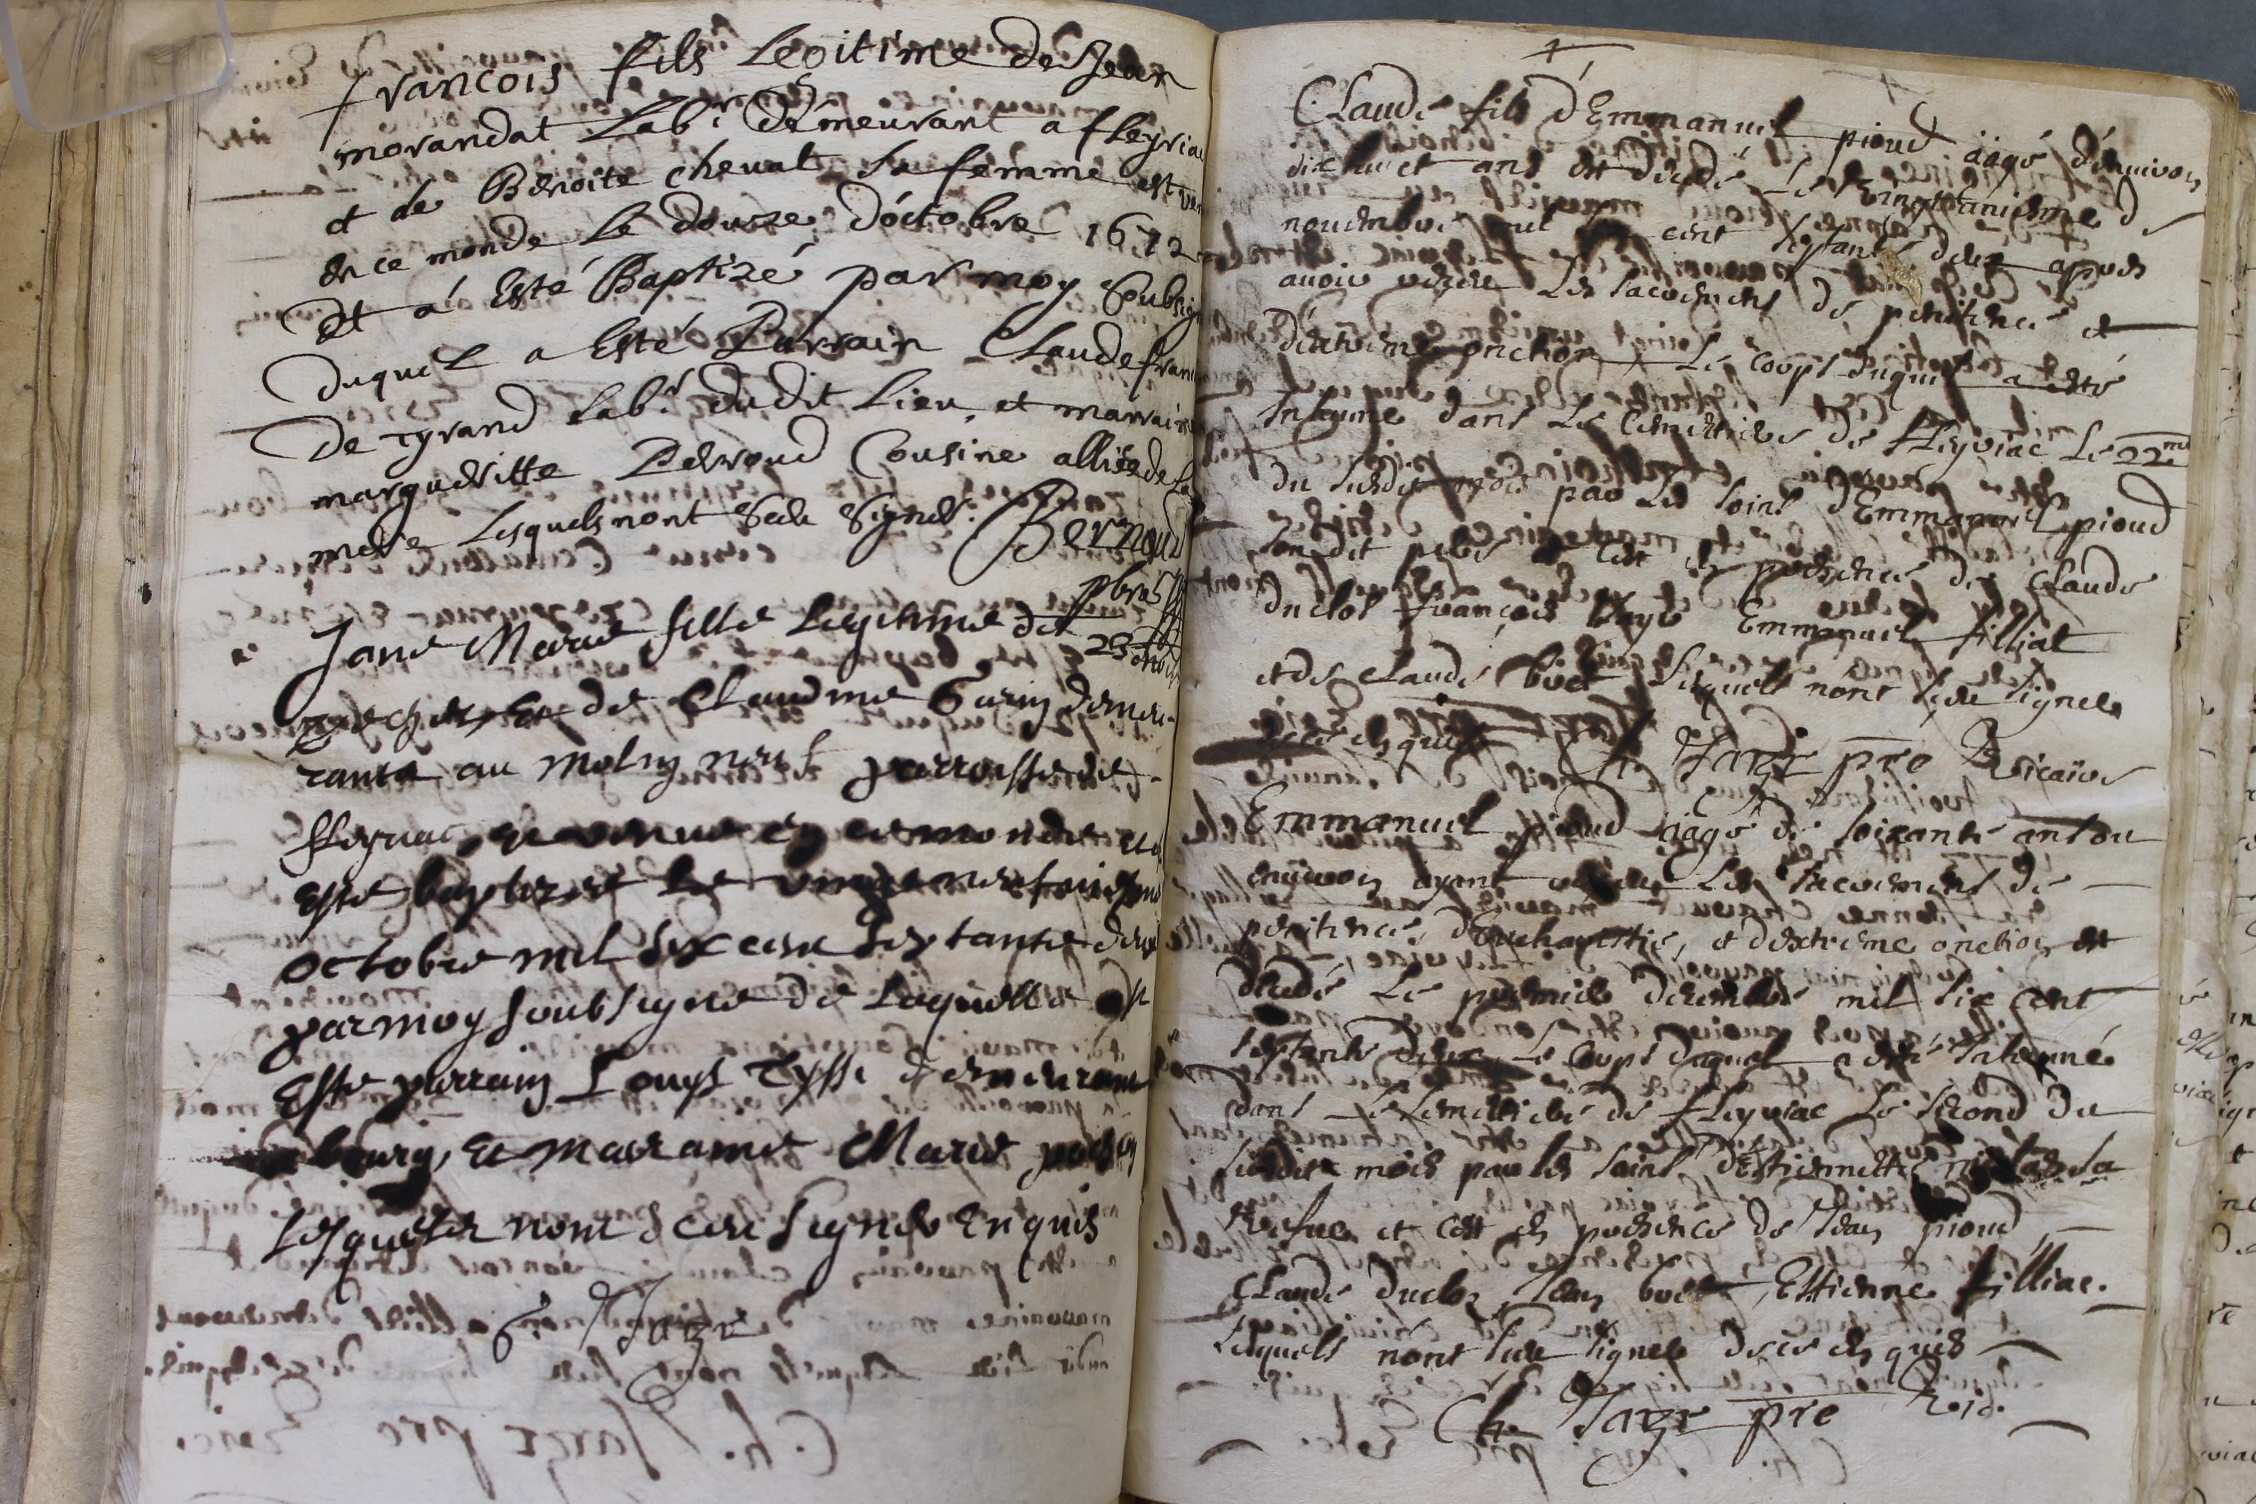 francois fils Legitime de Jean
morandat Lab.r Demeurant a fleyriac
et de Benoite cheual sa femme est ven
en ce monde le douze d'octobre 1672
Et a Esté Baptizé par moy Soubsig
duquel a Esté Parrain Claude fran
De tyrand lab.r dudit Lieu, et marraine
margueritte Perroud Cousine alliée de la
mere Lesquels nont sceu signer. Bernoud
pbre
Jane Marie fille Legitime de
et de Claudine Gurin demeu-
rante au Molin neuf parroisse de
fleyriac, est venue en ce monde et a
este baptizee le vingt neufuiesme
octobre mil six cens septante deux
par moy soubsigne de laquelle a
Este parrain Louys Tyssi demeurant
bourg, et marraine Marie
Lesquels nont sceu signer Enquis
Jayr
Claude fils d'Emmanuel pioud aagé d'enuiron
dix huict ans est decedé le Vingtuniesme de
nouembre mil six cent septante deux apres
auoir receu les sacrements de penitence et
d'extreme onction, Le corps duquel a esté
Inhumé dans le Cemettiere de fleyriac le 22.me
du susdit mois par les soins d'Emmanuel pioud
son dit pere et cest en presence de Claude
Duclos francois Emmanuel filliat
et de Claude buet Lesquels nont sceu signer
de ce enquis
Ch. Jayr pre Vicaire
Emmanuel pioud aagé de soixante ans ou
enuiron ayant receu Les sacrements de
penitence, d'Eucharistie, et d'extreme onction est
decedé Le premier decembre mil six cent
septante deux, Le Corps duquel a esté Inhumé
dans le Cemettiere de fleyriac le second du
susdit mois par les soins d'Estiennette sa
vefue et cest en presence de Jean pioud,
Claude duclos, Jean buet, Estienne filliac.
Lesquels nont sceu signer de ce enquis
Ch. Jayr pre Vic.